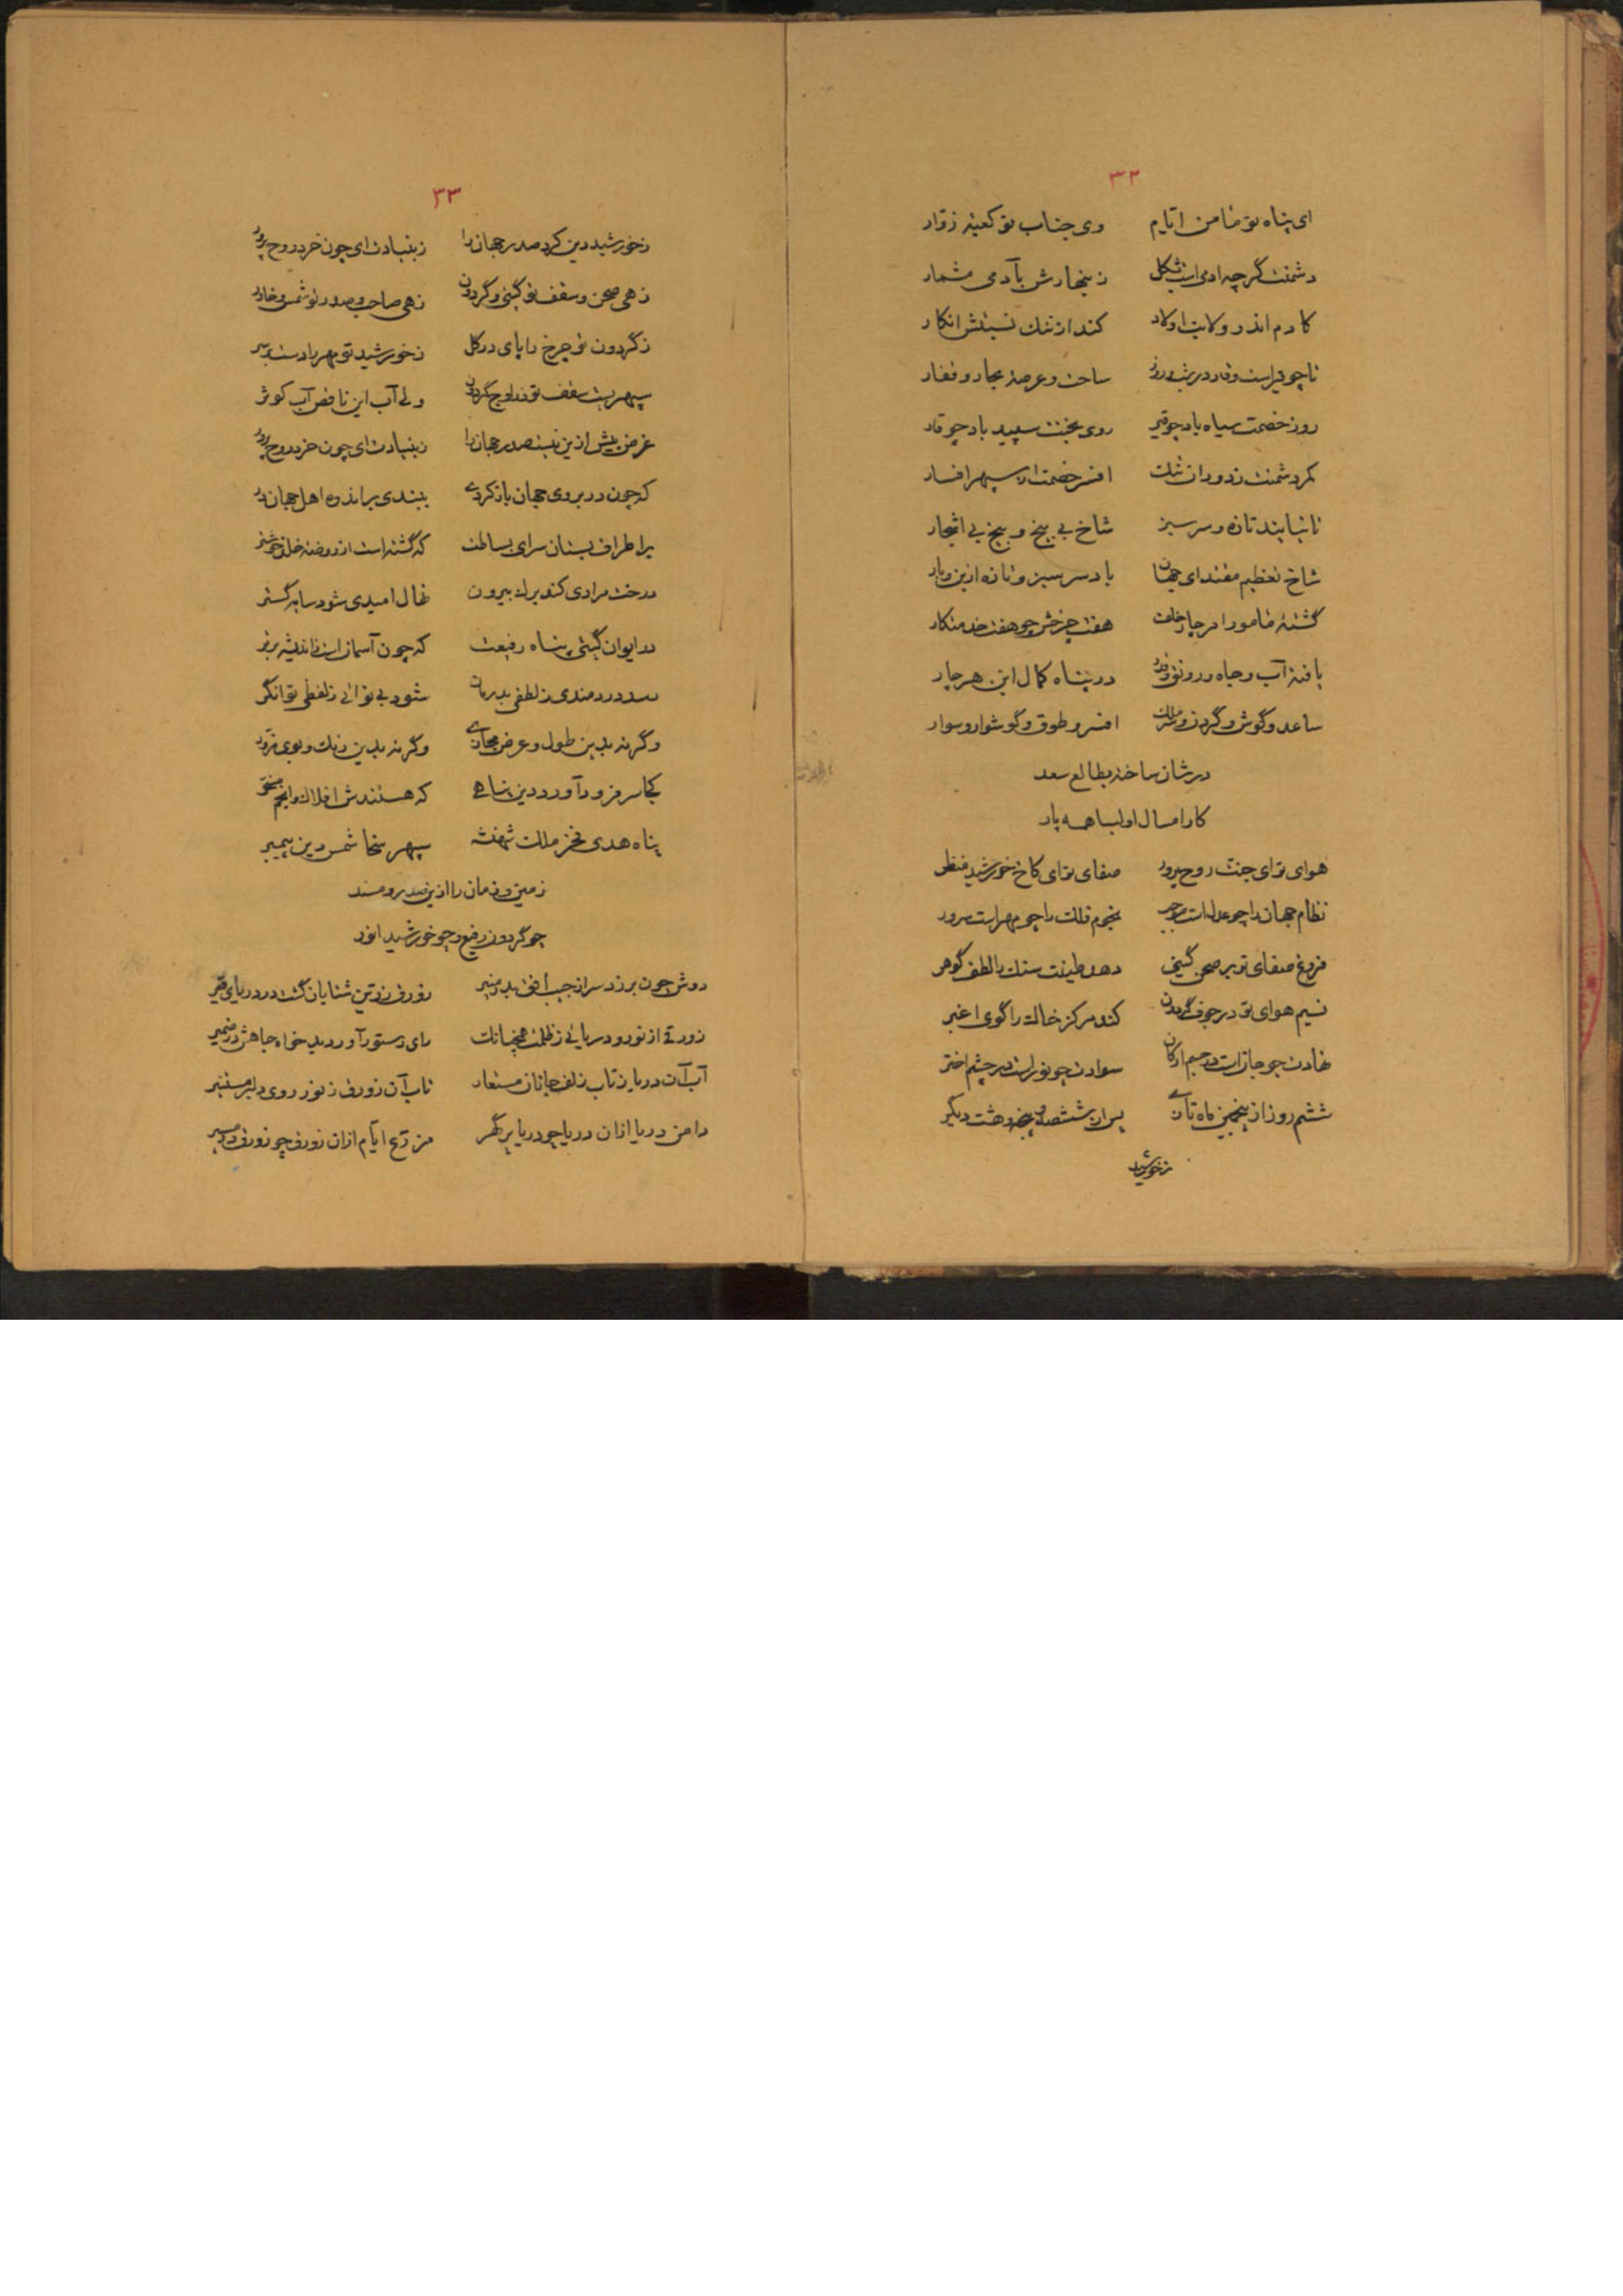 ۳۲
ای پناه تو ضامن ایام وی جناب تو کعبه زوار
دشمنت گرچه ادمی است بشکل زینهارش بآدمی مشمار
کادم اندر ولایت اولاد کند از ننک نسبتش انکار
تا چو قیر است و قار در شب و روز ساحت و عرصه بحار و قفار
روز خصمت سیاه باد چو قیر روی بختت سپید باد چو قار
کمر دشمنت ز دوران افسر خصمت از سپهر افسار
تا نیابند تازه و سرسبز شاخ بی بیخ و بیخ بی اشجار
شاخ تعظیم مقتدای جهان باد سرسبز و تازه ازین
گشته مامور امر هفت چرخش چو هفت خدمتکار
یافته آب و جاه و رونق و در پناه کمال این هر چار
ساعد و گوش و گردن و افسر و طوق و گوشوار و سوار
در شان ساخته بطالع سعد
کار امسال اولیا همه پار
هوای تو ای جنت روح پرور صفای تو ای کاخ خورشید منظر
نظام جهان را چو عدل است نجوم فلک را چو مهر است
فروغ صفای تو بر صحن گیتی دهد طینت سنک را لطف گوهر
نسیم هوای تو در جوف گردون کند مرکز خاک را گوی اغبر
نهادت چو جان است در جسم ارکان سوادت چو نور است در چشم اختر
ششم روز از پنجمین ماه تازی پس از ششصد و پنجه و هشت دیگر
زخورشید
۳۳
زخورشید دین کرد صدر جهان را ز بنیادت ای چون خرد روح پرور
زهی صحن و سقف تو گیتی و گردون زهی صاحب و صدر تو شمس و خاور
ز گردون تو چرخ را پای در گل ز خورشید تو مهر را دست بر سر
سپهر سقف تو در اوج گردون ولی آب این ناقض آب کوثر
غرض بیش ازین نیست صدر جهان را ز بنیادت ای چون خرد روح پرور
که چون در بروی جهان باز کردی ببندی بر اندوه اهل جهان در
بر اطراف بستان سرای بساطت که گشته است از روضه خلد خوشتر
درخت مرادی کند برک بیرون نهال امیدی شود سایه گستر
در ایوان گیتی پناه رفیعت که چون آسمان است ز اندیشه برتر
رسد دردمندی ز لطفی بدرمان شود بی نوائی ز لفظی توانگر
وگرنه بدین طول و عرض مجازی وگرنه بدین رنک و بوی مزور
کجا سر فرود آورد دین پناهی که هستند افلاک و انجم
پناه هدی فخر ملت شهنشه سپهر سخا شمس دین پیمبر
زمین و زمان را ازین صدر و مسند
چو گردون رفیع و چو خورشید انور
دوش چون بر زد سر از جیب افق بدر منیر زورق زرین شتابان گشت در دریای قیر
زورقی از نور و دریائی ز ظلمت همچنانک رای دستور آورد بدخواه جاهش در ضمیر
آب آن دریا ز تاب زلف جانان مستعار تاب آن زورق ز نور روی دلبر مستنیر
دامن دریا ازان دریا چو دریا پر گهر ایام ازان زورق چو زورق در مسیر